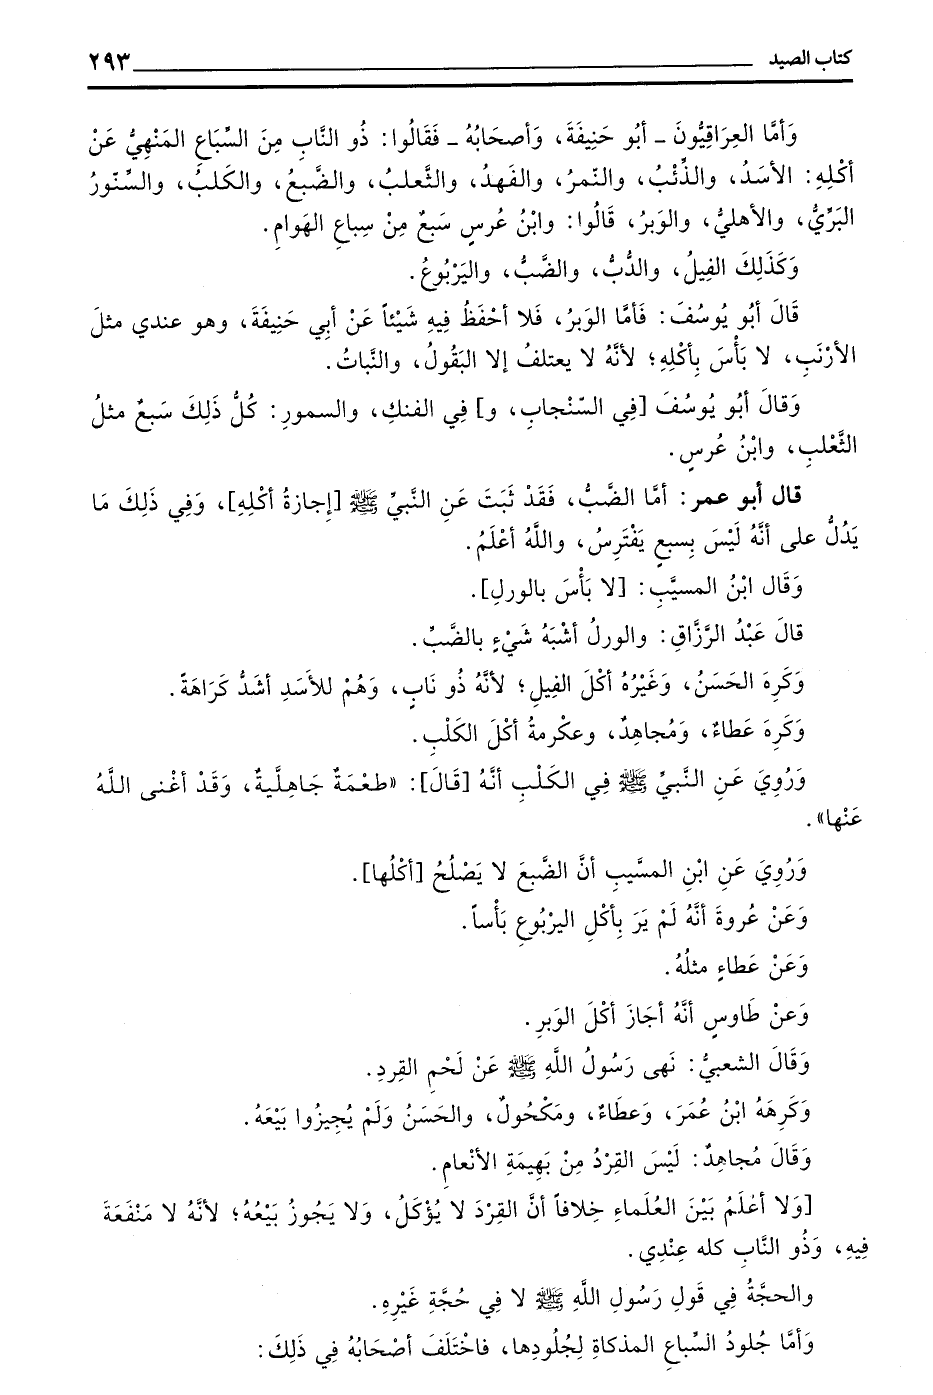 كتاب الصيد ٢٩٣
وَأمَّا العِرَاقِيُّونَ ـ أبُو حَنِيفَةَ، وَأصحَابُهُ ـ فَقَالُوا: ذُو النَّابِ مِنَ السِّبَاعِ المَنْهِيُّ عَنْ
أكْلِهِ: الأسَدُ، والذِّئْبُ، والنّمرُ، والفَهدُ، والثَّعلبُ، والضَّبعُ، والكَلبُ، والسِّنّورُ
البَرِّيُّ، والأهليُّ، والوَبرُ، قَالُوا: وابْنُ عُرسٍ سَبعٌ مِنْ سِباعِ الهَوامِ.
وَكَذَلِكَ الفِيلُ، والدُّبُّ، والضَّبُّ، واليَرْبُوعُ.
قَالَ أبُو يُوسُفَ: فَأمَّا الوَبرُ، فَلا أحْفَظُ فِيهِ شَيْئاً عَنْ أبِي حَنِيفَةَ، وهو عندي مثلَ
الأرْنَبِ، لا بَأْسَ بِأكْلِهِ؛ لأنَّهُ لا يعتلفُ إلا البَقُولُ، والنَّباتُ.
وَقالَ أبُو يُوسُفَ [فِي السّنْجابِ، و] فِي الفنكِ، والسمورِ: كُلُّ ذَلِكَ سَبعٌ مثلُ
الثَّعْلبِ، وابْنُ عُرسٍ.
قال أبو عمر: أمَّا الضَّبُّ، فَقَدْ ثَبَتَ عَنِ النَّبيِّ ﷺ [إجازةُ أكْلِهِ]، وَفِي ذَلِكَ مَا
يَدُلُّ على أنَّهُ لَيْسَ بِسبعٍ يَفْتَرِسُ، واللَّهُ أعْلَمُ.
وَقَال ابْنُ المسيَّبِ: [لا بَأْسَ بالورلِ].
قالَ عَبْدُ الرَّزَّاقِ: والورلُ أشْبَهُ شَيْءٍ بالضَّبِّ.
وَكَرِهَ الحَسَنُ، وَغَيْرُهُ أكْلَ الفِيلِ؛ لأنَّهُ ذُو نَابٍ، وَهُمْ للأسَدِ أشَدُّ كَرَاهَةً.
وَكَرِهَ عَطاءٌ، وَمُجاهِدٌ، وعكْرمةُ أكْلَ الكَلْبِ.
وَرُوِيَ عَنِ النَّبيِّ ﷺ فِي الكَلْبِ أنَّهُ [قَالَ]: «طعْمَةٌ جَاهِلَّيةٌ، وَقَدْ أغْنى اللَّهُ
عَنْها».
وَرُوِيَ عَنِ ابْنِ المسَّيبِ أنَّ الضَّبعَ لا يَصْلُحُ [أكْلُها].
وَعَنْ عُروةَ أنَّهُ لَمْ يَرَ بِأكْلِ اليرْبُوعِ بَأْساً.
وَعَنْ عَطاءٍ مثلُهُ.
وَعنْ طَاوسٍ أنَّهُ أجَازَ أكْلَ الوَبرِ.
وَقَالَ الشعبيُّ: نَهى رَسُولُ اللَّهِ ﷺ عَنْ لَحْمِ القِردِ.
وَكَرِهَهُ ابْنُ عُمَرَ، وَعطَاءٌ، ومَكْحُولٌ، والحَسَنُ وَلَمْ يُجِيزُوا بَيْعَهُ.
وَقَالَ مُجاهِدٌ: لَيْسَ القِرْدُ مِنْ بَهِيمَةِ الأنْعامِ.
[وَلا أعْلَمُ بَيْنَ العُلَماءِ خِلافاً أنَّ القِرْدَ لا يُؤْكَلُ، وَلا يَجُوزُ بَيْعُهُ؛ لأنَّهُ لا مَنْفَعَةَ
فِيهِ، وَذُو النَّابِ كله عِنْدِي.
والحجَّةُ فِي قَولِ رَسُولِ اللَّهِ ﷺ لا فِي حُجَّةِ غَيْرِهِ.
وَأمَّا جُلودُ السِّباعِ المذكاةِ لِجُلودِها، فاخْتَلَفَ أصْحَابُهُ فِي ذَلِكَ: